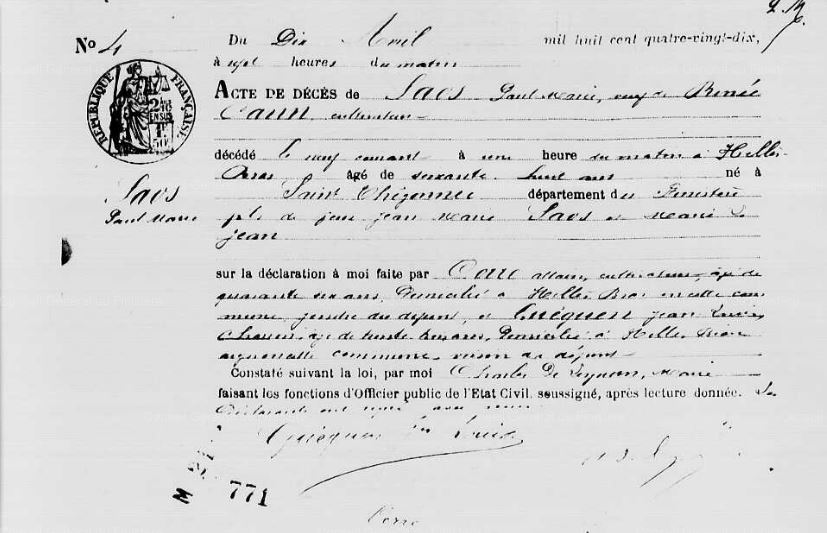 No 4
Du Dix Avril mil huit cent quatre-vingt-dix,
à sept heures du matin
ACTE DE DÉCÈS de Saos Paul Marie, veuf de Renée
Caun, cultivateur
décédé le neuf courant à une heure du matin à Helles-
Bras âgé de soixante huit ans né à
Saint département du Finistère
fils de feus jean marie Saos et marie
jean
RÉPUBLIQUE FRANÇAISE
Saos
Paul Marie
sur la déclaration à moi faite par cultivateur, âgé de
quarante six ans, Domicilié à Helles Bras en cette com
mune, gendre du défunt, et Guéguen jean Louis
âgé de trente ans, Domicilié à Helles Bras
en cette commune, voisin du défunt
Constaté suivant la loi, par moi Charles De maire
faisant les fonctions d'Officier public de l'Etat Civil, soussigné, après lecture donnée. Les
Déclarants ont signé avec nous
Guéguen Jn Louis
771